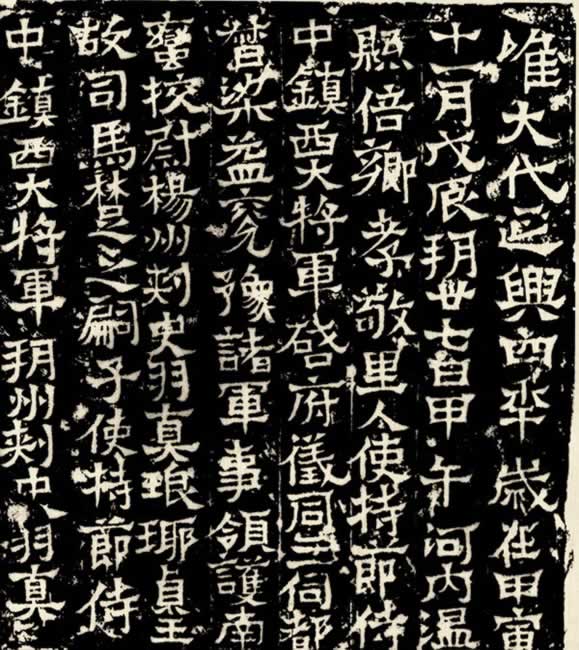 唯大代延興四年歲在甲寅
十一月戊辰朔廿七日甲午河內温
縣倍鄉孝敬里人使持節侍
中鎮西大將軍啓府儀同三司都
督梁益兖豫諸軍事領護南
蠻校尉楊州刾史羽真琅琊貞王
故司馬楚之嗣子使持節侍
中鎮西大將軍朔州刾史羽真